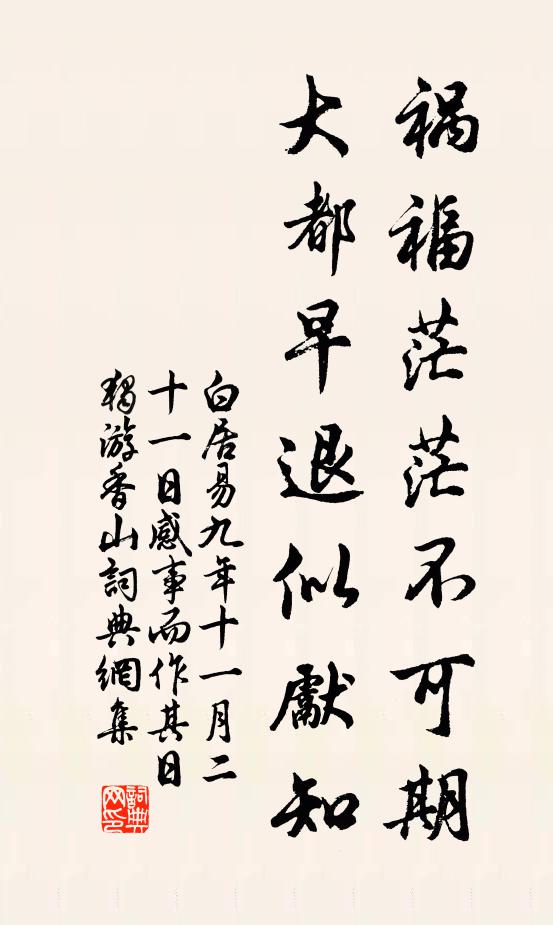 祸福茫茫不可期
大都早退似獻知
白居易九年十一月二
十一日感事而作其日
獨游香山詞典網集
詞典网印